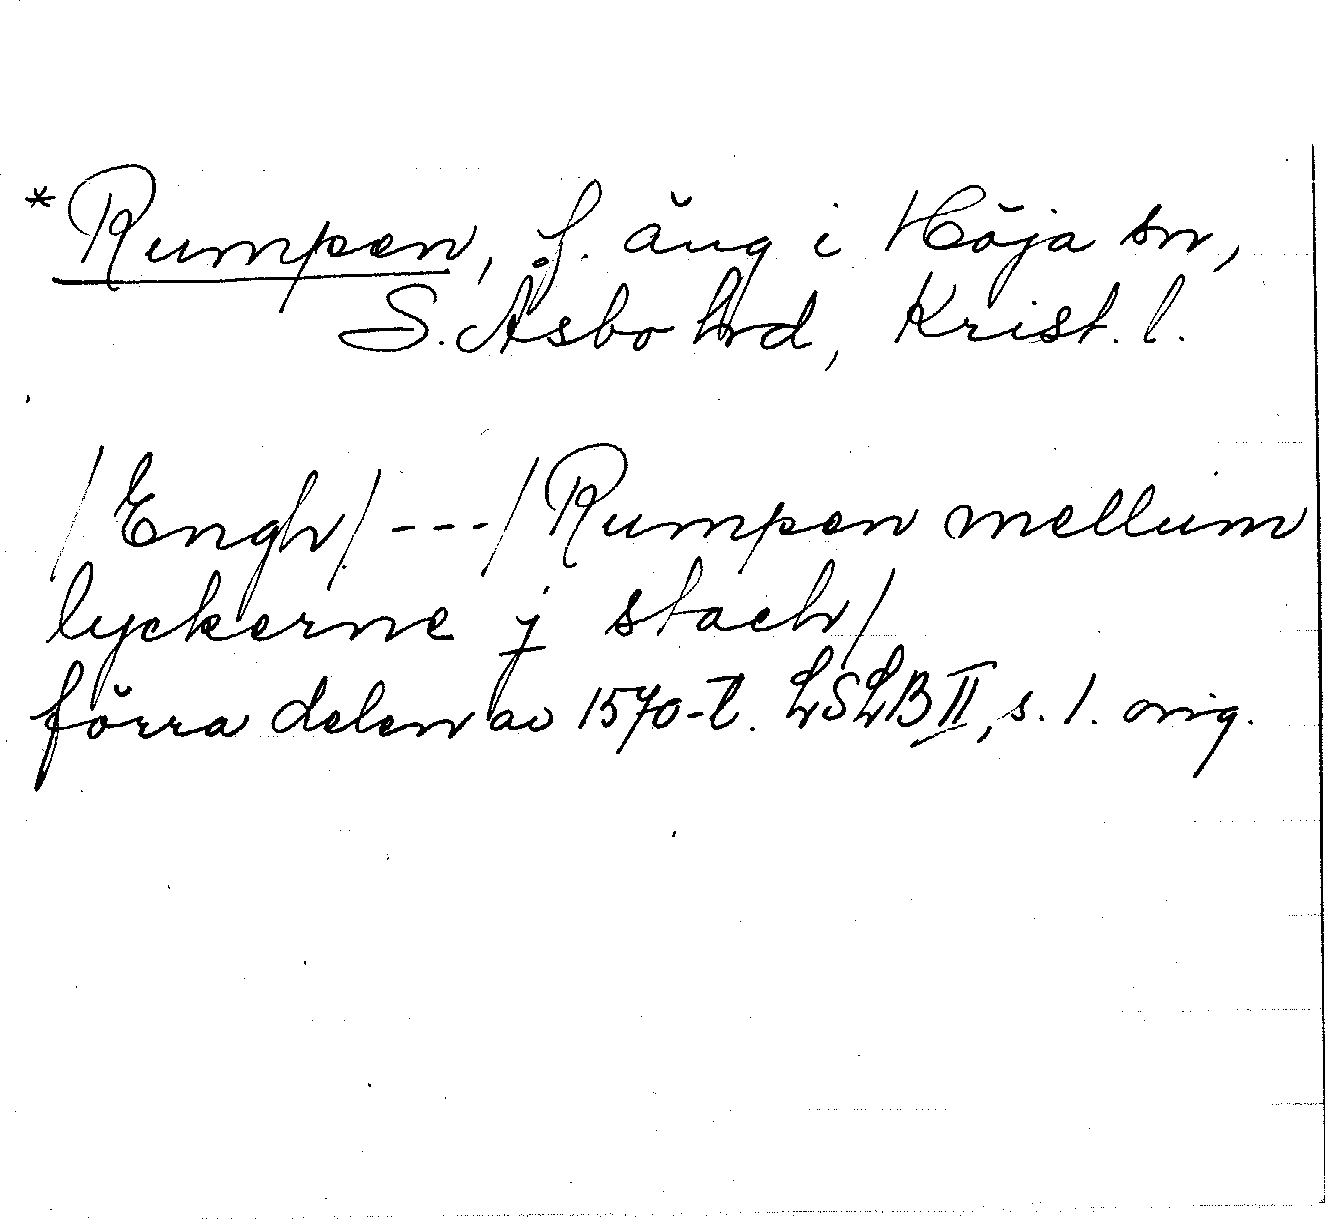 *Rumpen, f. äng i Höja sn,
S. Åsbo hrd, Krist. l.
/Engh/---/Rumpen mellum
lyckerne j stach/
förra delen av 1570-t. LSLB II, s. 1. orig.